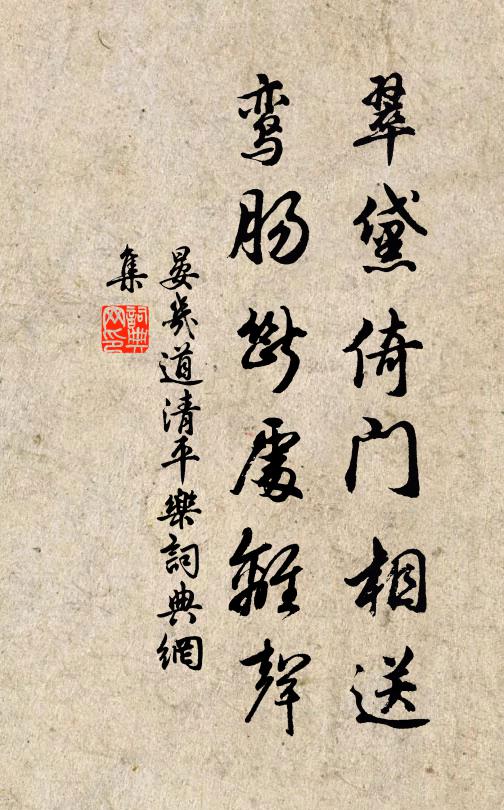 翠黛倚门相送
鸾肠斷處離聲
晏幾道清平樂詞典網
集
詞典
网印